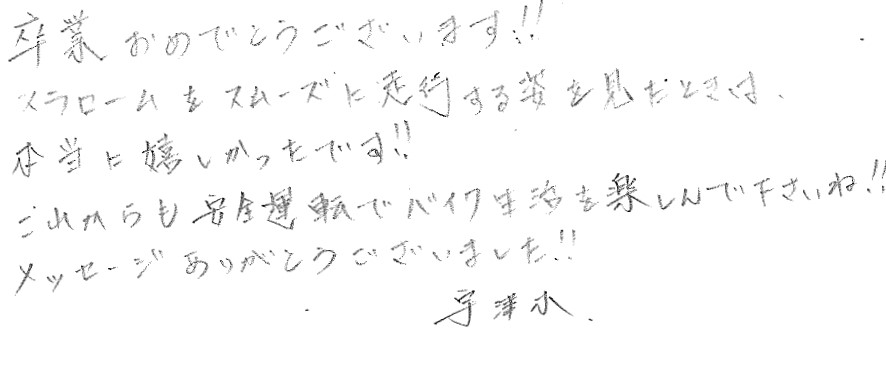 卒業おめでとうございます!!
スラロームをスムーズに走行する姿を見たときは、
本当に嬉しかったです!!
これからも安全運転でバイク生活を楽しんで下さいね!!
メッセージありがとうございました!!
宇津木